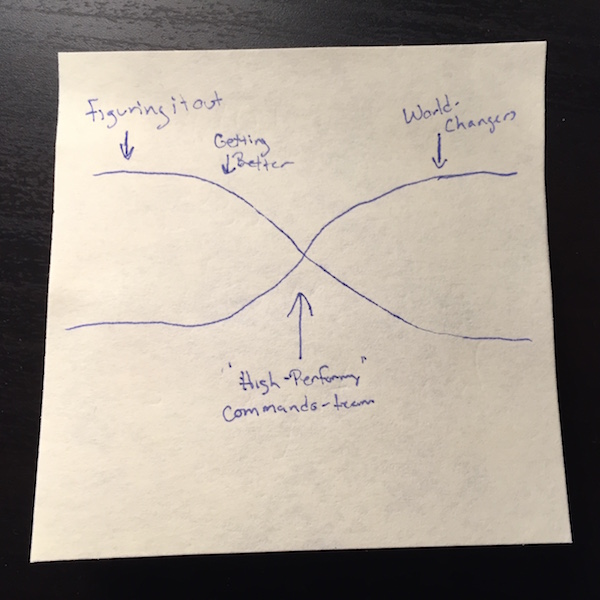 Figuring it out
Getting
Better
World-
Changers
"High-Performing"
Commando-team